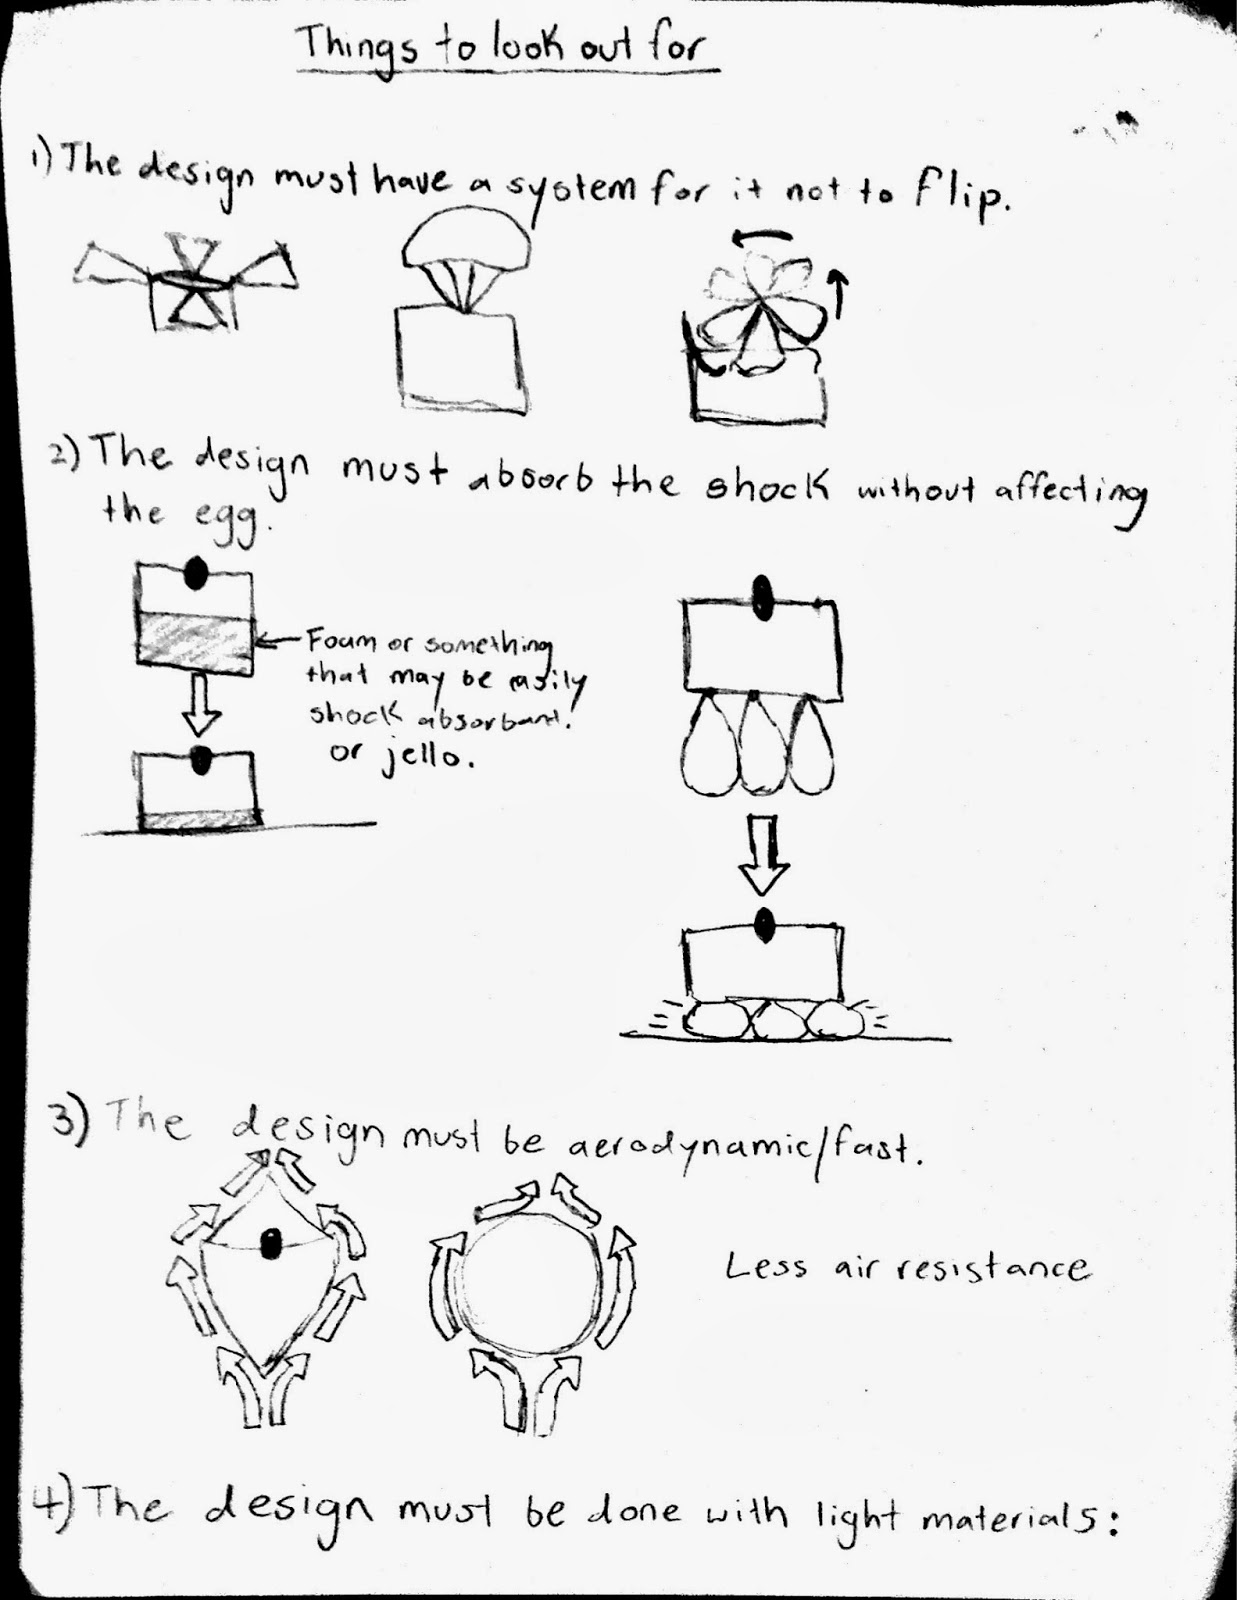 Things to look out for
1) The design must have a system for it not to flip.
2) The design must absorb the shock without affecting
the egg.
Foam or something
that may be easily
shock absorbant.
or jello.
3) The design must be aerodynamic/fast.
Less air resistance
4) The design must be done with light materials: